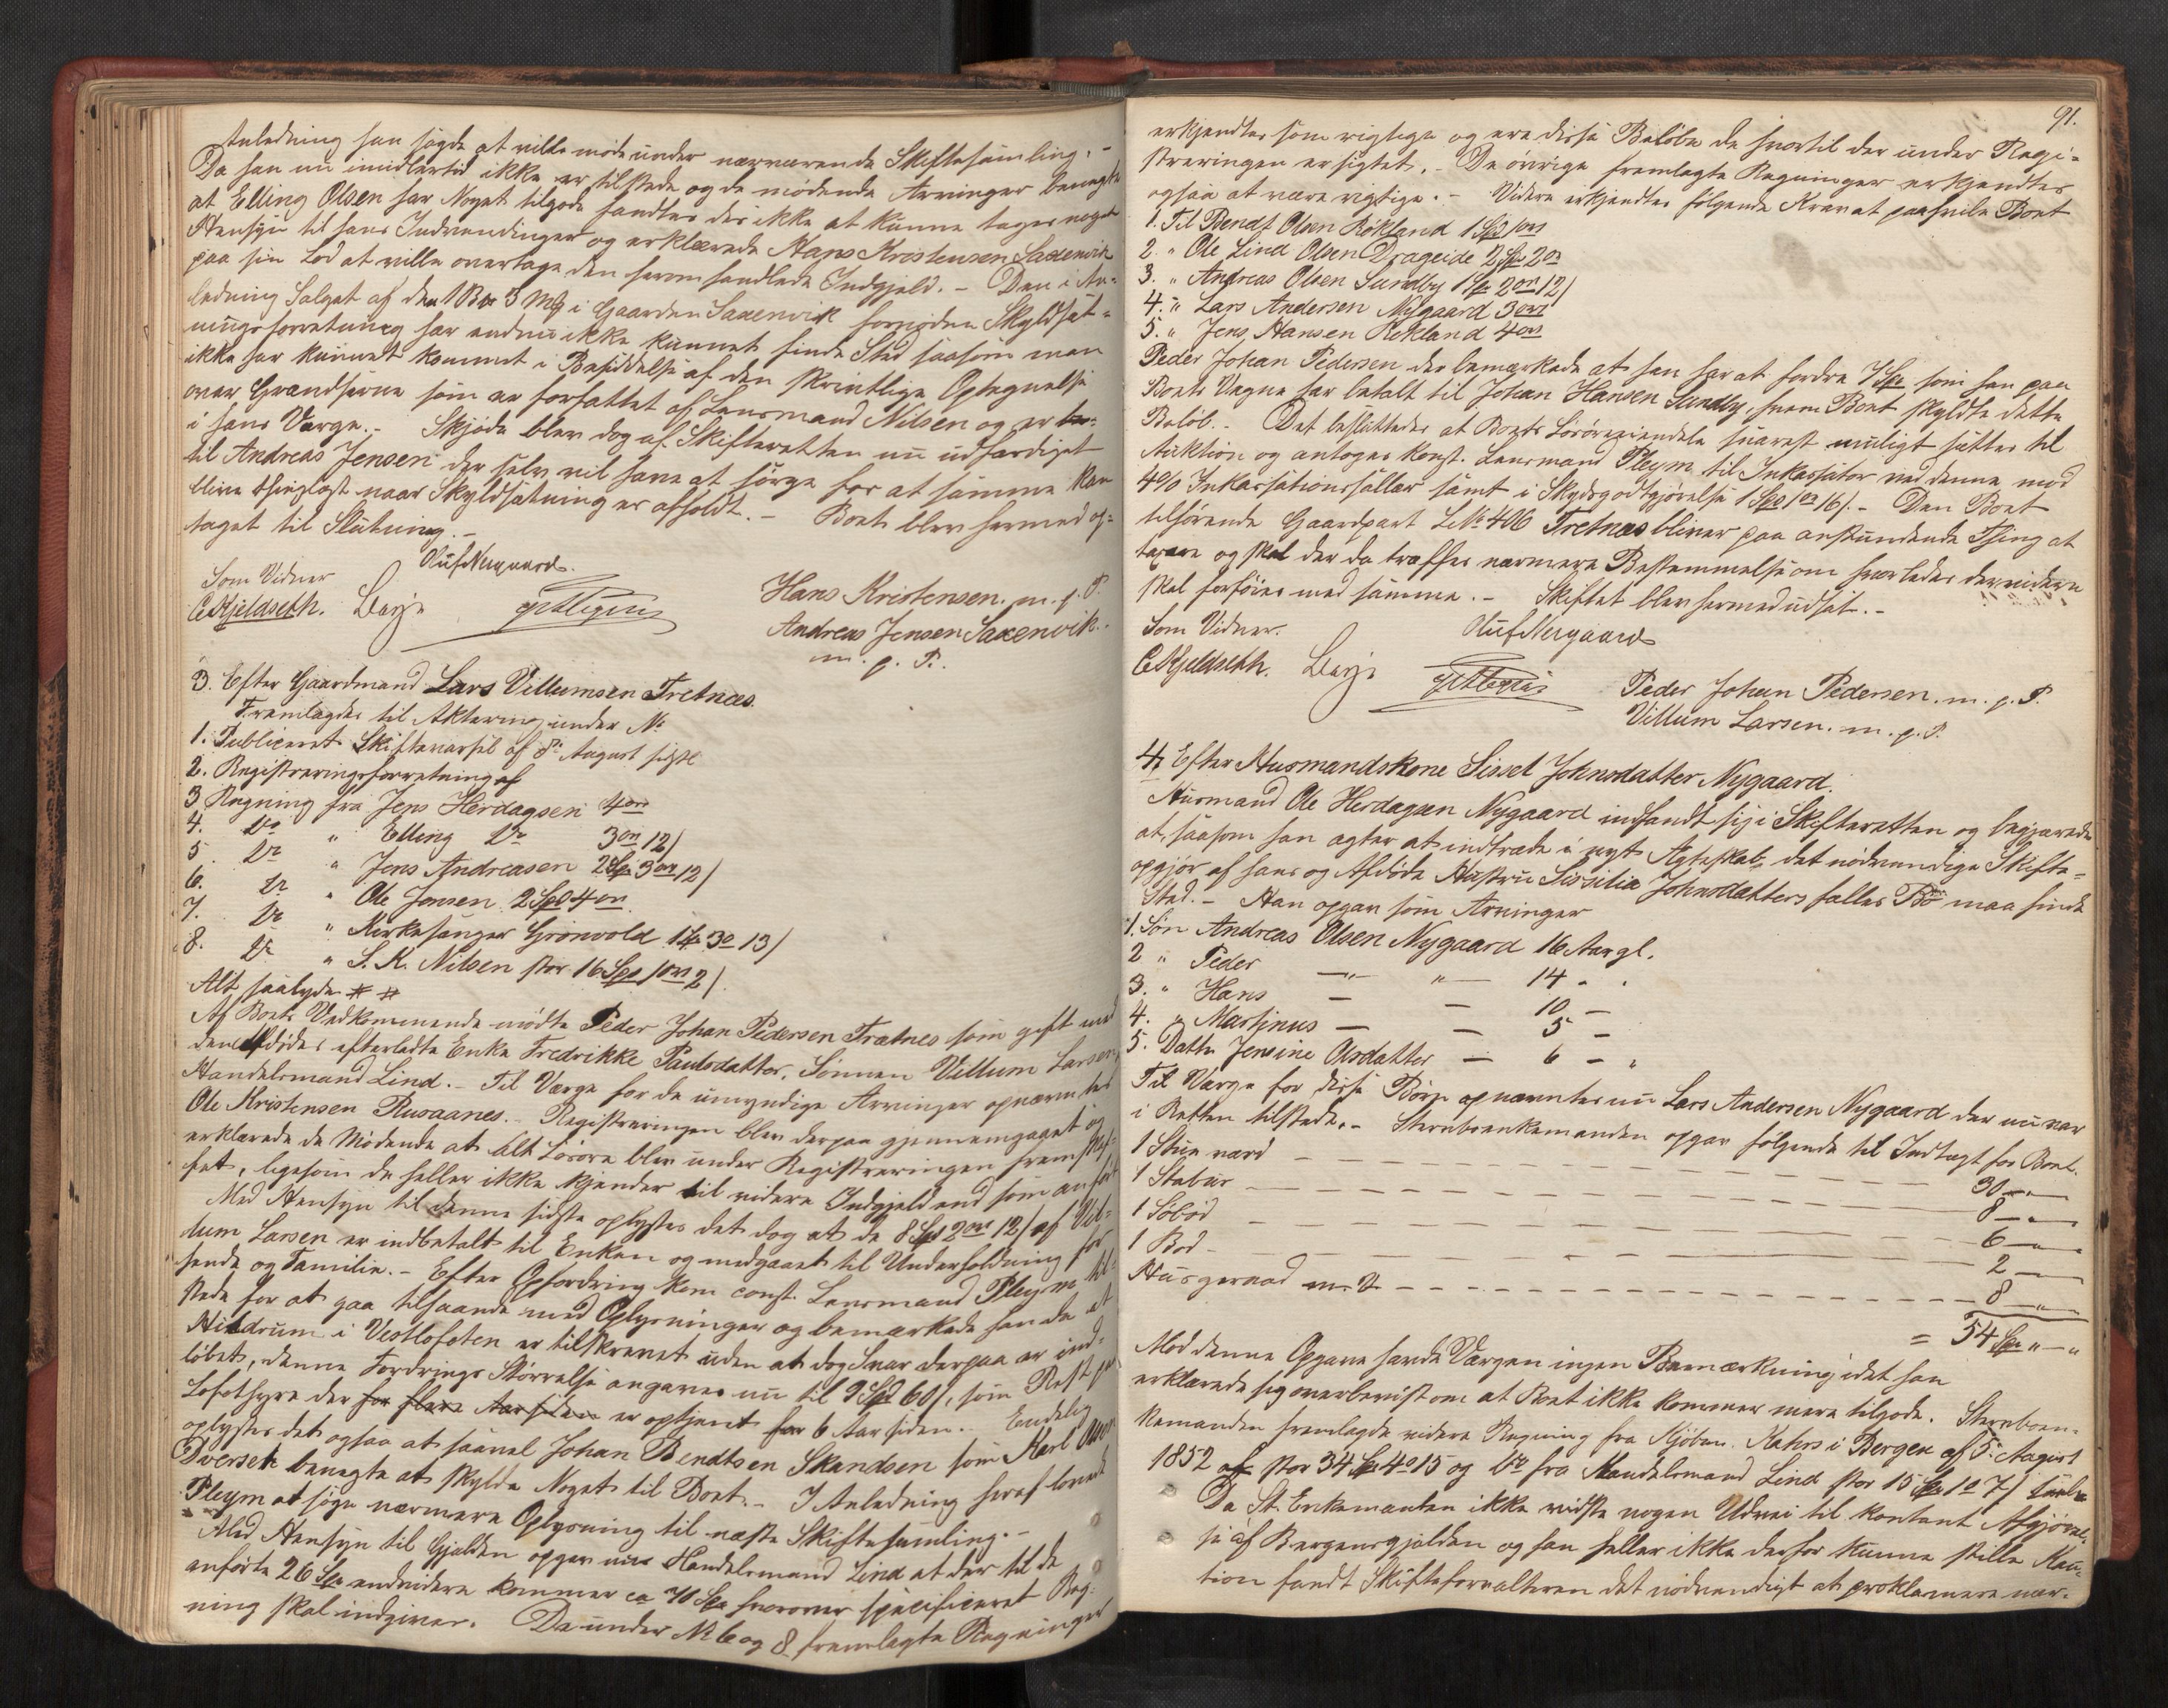 Anledning han sagde at ville møde under nærværende Skiftesamling. –
Da han nu imidlertid ikke er tilstede og de mødende Arvinger benegte
at Elling Olsen har Noget tilgode fandtes der ikke at kunne tages noget
Hensyn til hans Indvendinger og erklærede Hans Kristensen Saxenvik
paa sin Lod at ville overtage den herom handlede Indgjeld. – Den i An-
ledning Salget af den 1 Bpr 3 Mk i Gaarden Saxenvik fornødne Skyldsæt-
ningsforretning har endnu ikke kunnet finde Sted saasom man
ikke har kunnet kommet i Besiddelse af den skriftlige Optegnelse
over Grændserne som er forfattet af Lensmand Nilsen og er
i hans Værge. – Skjøde blev dog af Skifteretten nu udfærdiget
til Andreas Jensen der selv vil have at sørge for at samme kan
blive thinglæst naar Skyldsætning er afholdt. – Boet blev hermed op-
taget til Slutning. –
Oluf Nergaard
Som Vidner
C Kjeldseth. Berje
Hans Kristensen. m. p. P.
Andreas Jensen Saxenvik.
m. p. P.
3. Efter Gaardmand Lars Villumsen Tretnæs.
Fremlagdes til Aktering under №
1. Publiceret Skiftevarsel af 8de August sidstl
2. Registreringsforretning af
3 Regning fra Jens Herdagsen 4 ort
4. Do " Elling Do 3 ort 12 /
5. Do " Jens Andreasen 2 Spd 3 ort 12 /
6. Do " Ole Jensen 2 Spd 4 ort
7. Do " Kirkesanger Grönvold 1 Spd 3 o 13 /
8. Do " S. K. Nilsen stor 16 Spd 1 ort 2 /
Alt saalyde # #
Af Boets Vedkommende mødte Peder Johan Pedersen Trætnes som gift med
den Afdødes efterladte Enke Fredrikke Paulsdatter, Sønnen Villum Larsen,
Handelsmand Lind. – Til Værge for de umyndige Arvinger opnævntes
Ole Kristensen Rusaanes. – Registreringen blev derpaa gjennemgaaet og
erklærede de Mødende at alt Løsøre blev under Registreringen fremskaf-
fet, ligesom de heller ikke kjender til videre Indgjeld end som anført
Med Hensyn til denne sidste oplystes det dog at de 8 Spd 2 ort 12 / af Vil-
lum Larsen er indbetalt til Enken og medgaaet til Underholdning for
hende og Familie. – Efter Opfordring kom const. Lensmand Pleym til-
stede for at gaa tilhaande med Oplysninger og bemærkede han da at
Hildrum i Vestlofoten er tilskrevet uden at dog Svar derpaa er ind-
løbet, denne Fordrings Størrelse angaves nu til 9 Spd 60 /, som Rest paa
Lofothyre der for flere Aar siden er optjent for 6 Aar siden. – Endelig
oplystes det ogsaa at saavel Johan Bendtsen Skandsen som Karl
Dverset benegte at skylde Noget til Boet. – I Anledning heraf lovede
Pleym at søge nærmere Oplysning til næste Skiftesamling. –
Med Hensyn til Gjelden opgav nu Handelsmand Lind at der til de
anførte 26 Spd endvidere kommer ca 70 Spd hvorover specificeret Reg-
ning skal indgives. De under № 6 og 8 fremlagte Regninger
91.
erkjendtes som rigtige og ere disse Beløbe de hvortil der under Regi-
streringen er sigtet. – De øvrige fremlagte Regninger erkjendtes
ogsaa at være rigtige. – Videre erkjendtes følgende Krav at paahvile Boet
1. Til Bendt Olsen Rökland 1 Spd 1 ort
2. " Ole Lind Olsen Drageide 2 Spd 2 ort
3. " Andreas Olsen Sundby 1 Spd 2 ort 12 /
4. " Lars Andersen Nygaard 3 ort
5. " Jens Hansen Rökland 4 ort
Peder Johan Pedersen der bemærkede at han har at fordre 7 Spd som han paa
Boets Vegne har betalt til Johan Hansen Sundby, hvem Boet skyldte dette
Beløb. – Det besluttedes at Boets Løsøreeiendele snarest muligt sættes til
Auktion og antoges konst. Lensmand Pleym til Inkassator ved denne mod
4% Inkassationssallær samt i Skydsgodtgjørelse 1 Spd 1 ort 16 /. – Den Boet
tilhørende Gaardpart L.№ 406 Tretnæs bliver paa anstundende Thing at
taxere og skal der da træffes nærmere Bestemmelse om hvorledes dermed videre
skal forføies med samme. – Skiftet blev hermed udsat. –
Som Vidner.
Oluf Nergaard
C Kjeldseth. Berje
Peder Johan Pedersen. m. p. P.
Villum Larsen. m. p. P.
4. Efter Husmandskone Sissel Johnsdatter Nygaard.
Husmand Ole Herdagsen Nygaard indfandt sig i Skifteretten og begjærede
at, saasom han agter at indtræde i nyt Ægteskab, det nødvendige Skifte-
opgjør af hans og Afdøde Hustru Sissilia Johnsdatters fælles Bo maa finde
Sted. – Han opgav som Arvinger
1. Søn Andreas Olsen Nygaard 16 Aar gl.
2 " Peder — " — " — 14 - "
3. " Hans — — 10 —
4. " Martinus — — 5 —
5. Datter Jensine Olsdatter — 6 — "
Til Værge for disse Børn opnævntes nu Lars Andersen Nygaard der nu var
i Retten tilstede. – Stervboenkemanden opgav følgende til Indtægt for Boet.
1 Stue værd — — — 30 — "
1 Stabur — — — 8 — "
1 Søbod — — — 6 — "
1 Bod — — — 2 — "
Husgeraad m. V. — — — 8 — "
= 54 Spd " — "
Mod denne Opgave havde Værgen ingen Bemærkning idet han
erklærede sig overbevist om at Boet ikke kommer mere tilgode. Stervboen-
kemanden fremlagde videre Regning fra Kjøbm. Kahrs i Bergen af 5. August
1852 af stor 34 Spd 4 o 15 og Do fra Handelsmand Lind stor 15 Spd 1 o 7 /
Da St. Enkemanden ikke vidste nogen Udvei til kontant Afgjørel-
se af Bergensgjelden og han heller ikke derfor kunne stille Kau-
tion fandt Skifteforvalteren det nødvendigt at proklamere nær-